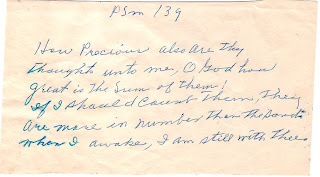 PSM 139
How Precious also Are thy
thoughts unto me, O God how
great is the Sum of them!
If I should Count them, they
Are more in number then the Sands
when I awake, I am still with thee